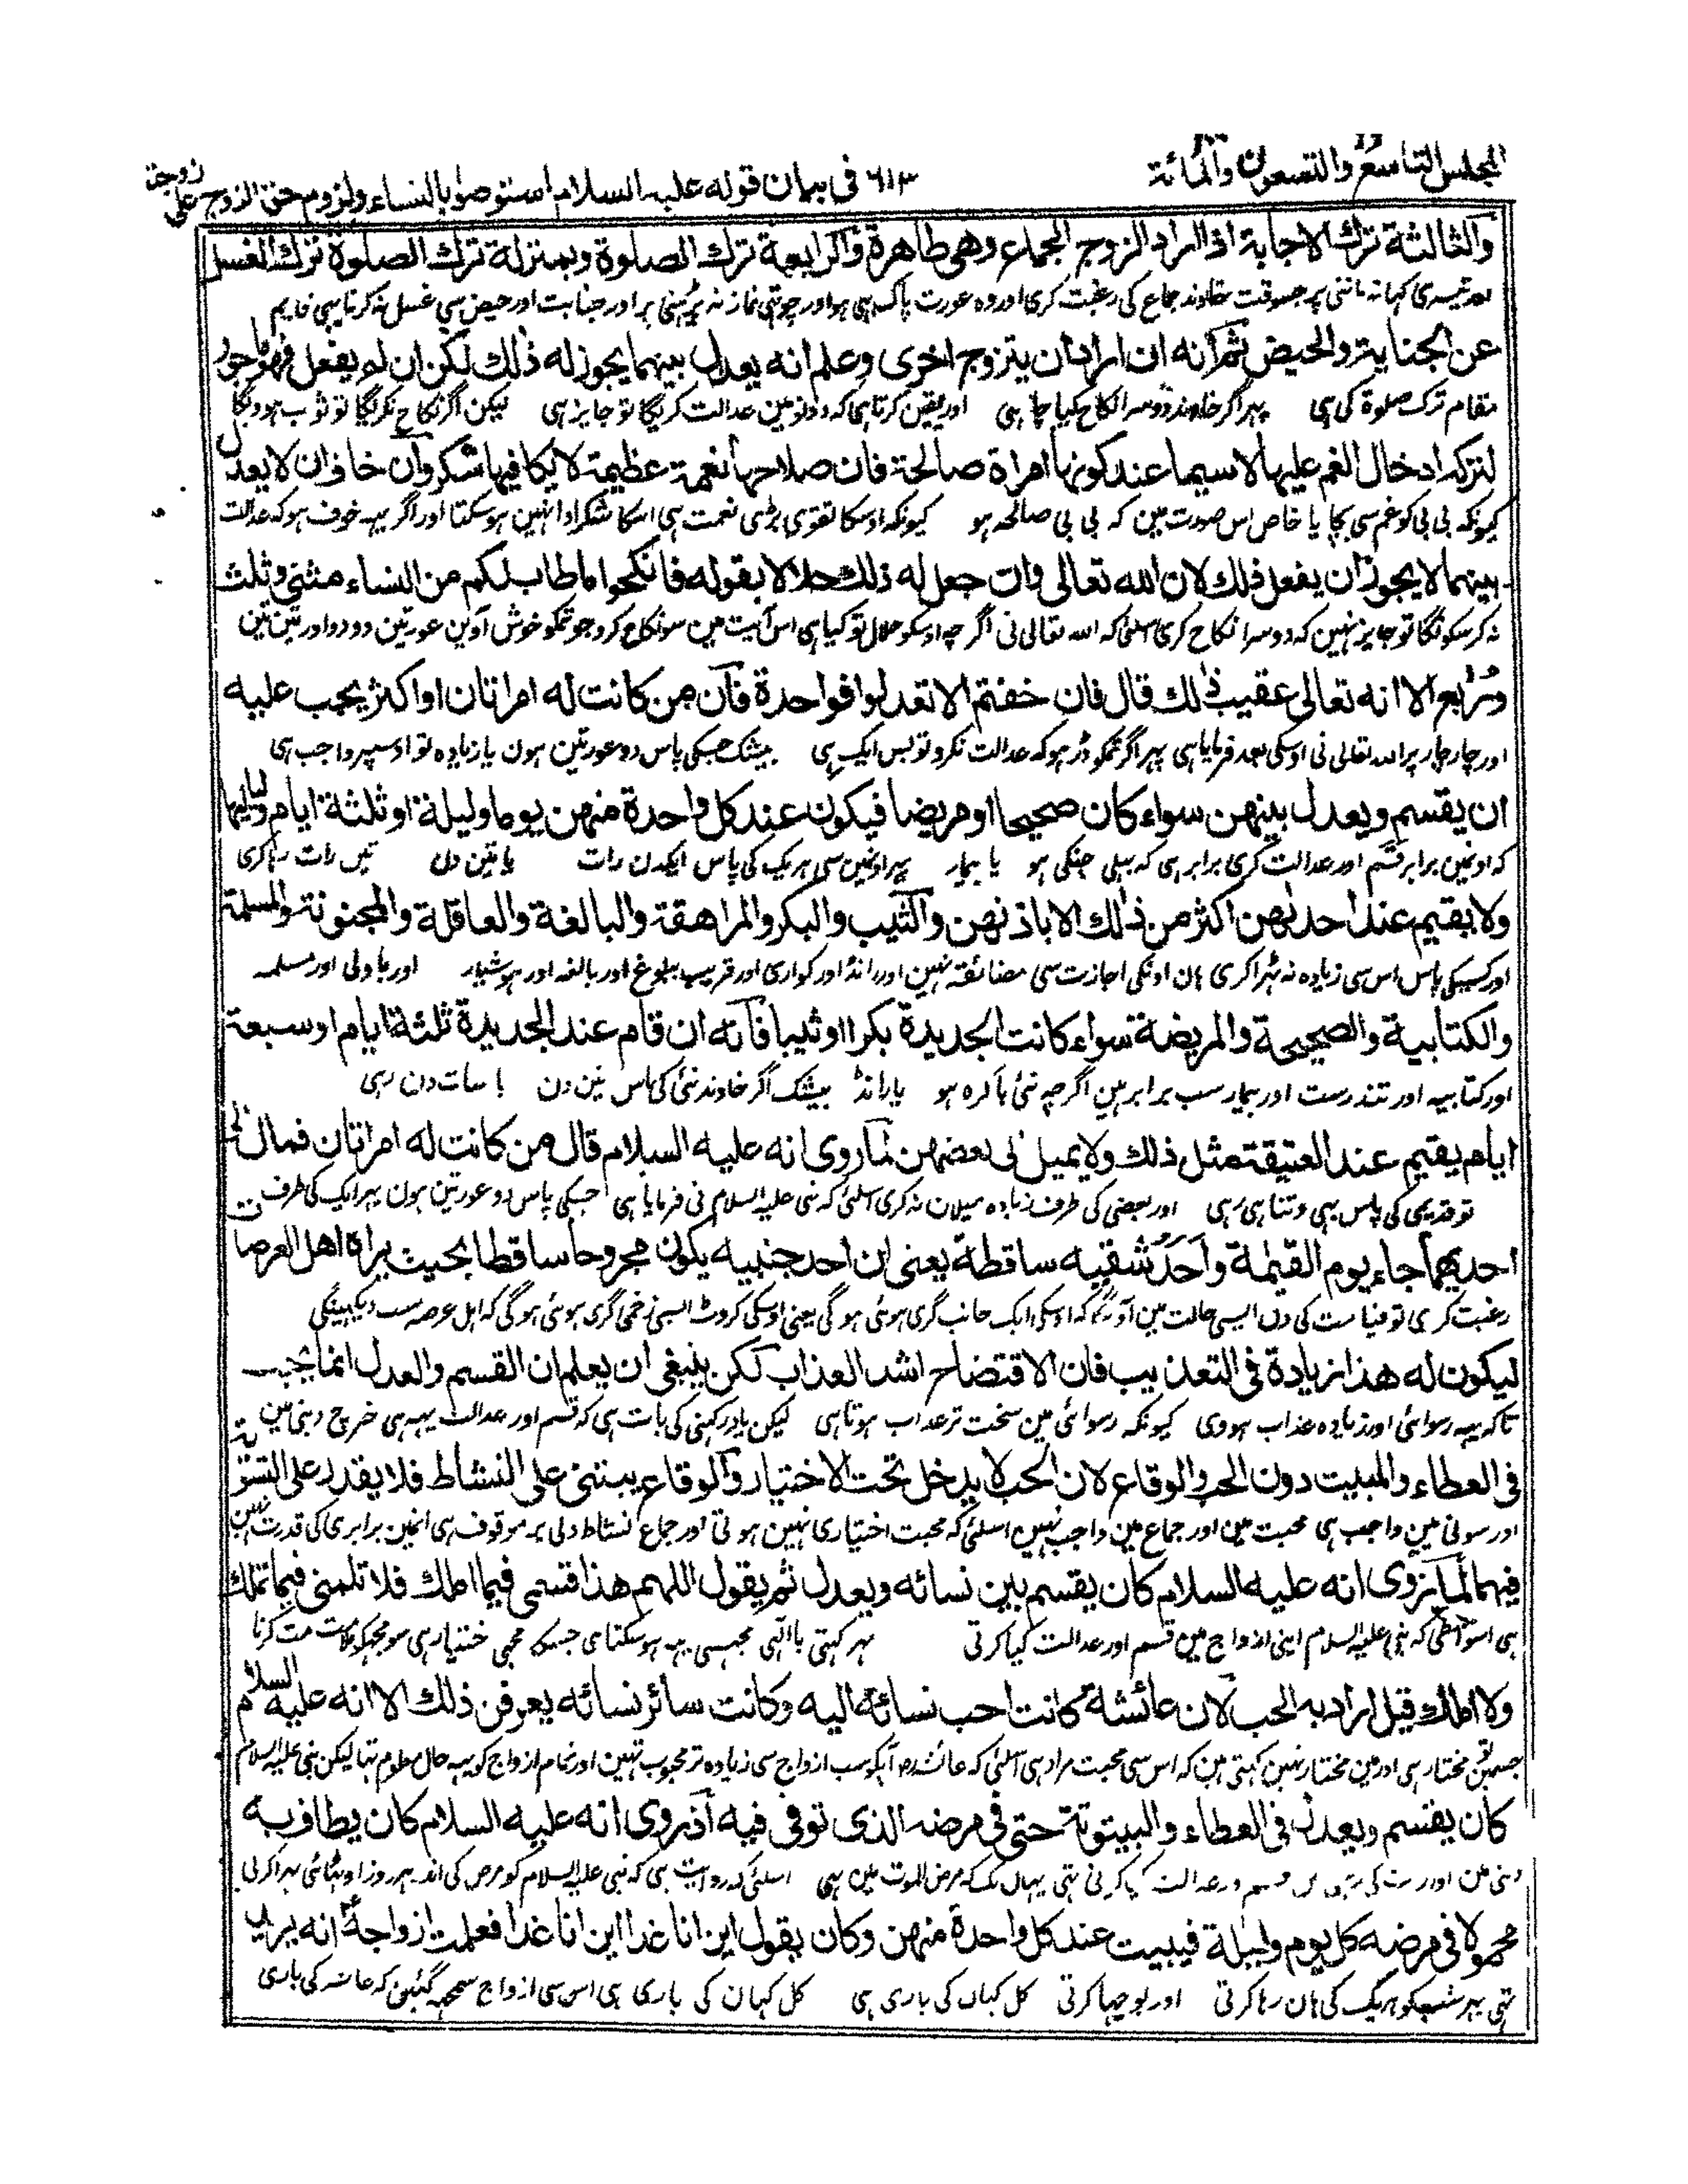 المجلس التاسع والتسعون والمائة
٦١٣ فى بيان قوله عليه السلام استوصوا بالنساء ولزوم حق الزوج على زوجته
والثالثة ترك الاجابة اذا اراد الزوج الجماع وهى طاهرة والرابعة ترك الصلوة وبمنزلة ترك الصلوة ترك الغسل
اور تیسری کہا نہ ماننی پر جسوقت خاوند جماع کی رغبت کری اور وہ عورت پاک بہی ہو اور چوتہی نماز نہ پڑہنی پر اور جنابت اور حیض سی غسل نہ کرنا بہی قایم
عن الجنابة والحيض ثم انه ان اراد ان يتزوج اخرى وعلم انه يعدل بينهما يجوز له ذلك لكن ان لم يفعل فهو ماجور
مقام ترک صلوة کی ہی پہر اگر خاوند دوسرا نکاح کیا چاہی اور یقین کرتا ہی کہ دونو مین عدالت کریگا تو جایز ہی لیکن اگر نکاح نکریگا تو ثوب ہوویگا
لتركه ادخال الغم عليها لاسيما عند كونها امراة صالحة فان صلاحها نعمة عظيمة لا يكافيها شكر وان خاف ان لا يعدل
کیونکہ بی بی کو غم سی بچایا خاص اس صورت مین کہ بی بی صالحہ ہو کیونکہ اوسکا تقوی بڑی نعمت ہی اسکا شکر ادا نہین ہو سکتا اور اگر یہہ خوف ہو کہ عدالت
بينهما لا يجوز ان يفعل ذلك لان الله تعالى وان جعل له ذلك حلالا بقوله فانكحوا ما طاب لكم من النساء مثنى وثلث
نہ کر سکونگا تو جایز نہین کہ دوسرا نکاح کری اسلئی کہ اللہ تعالی نی اگرچہ اوسکو حلال تو کیا ہی اس آیت مین سو نکاح کرو جو تمکو خوش آوین عورتین دو دو اور تین تین
وربع الا انه تعالى عقيب ذلك قال فان خفتم الا تعدلوا فواحدة فان من كانت له امراتان او اكثر يجب عليه
اور چار چار پر اللہ تعالی نی اوسکی بعد فرمایا ہی پہر اگر تمکو ڈر ہو کہ عدالت نکرو تو بس ایک ہی بیشک جسکی پاس دو عورتین ہون یا زیادہ تو اوسپر واجب ہی
ان يقسم ويعدل بينهن سواء كان صحيحا او مريضا فيكون عند كل واحدة منهن يوما وليلة او ثلثة ايام ولياليها
کہ اونمین برابر قسم اور عدالت کری برابر ہی کہ بہلی چنکی ہو یا بیمار پہر اونمین سی ہر یک کی پاس ایکدن رات یا تین دن تین رات رہا کری
ولا يقيم عند احدنهن اكثر من ذلك الا باذنهن والثيب والبكر والمراهقة والبالغة والعاقلة والمجنونة والمسلمة
اور کسیکی پاس اس سی زیادہ نہ ٹہرا کری ہان اونکی اجازت سی مضائقہ نہین اور رانڈ اور کواری اور قریب ببلوغ اور بالغہ اور ہوشیار اور باولی اور مسلمہ
والكتابية والصحيحة والمريضة سواء كانت الجديدة بكرا او ثيبا فانه ان قام عند الجديدة ثلثة ايام او سبعة
اور کتابیہ اور تندرست اور بیمار سب برابر ہین اگرچہ نئی باکرہ ہو یا رانڈ بیشک اگر خاوند نئی کی پاس تین دن یا سات دن رہی
ايام يقيم عند العتيقة مثل ذلك ولا يميل الى بعضهن لما روى انه عليه السلام قال من كانت له امراتان فمال الى
تو قدیمی کی پاس بہی وتنا ہی رہی اور بعضی کی طرف زیادہ میلان نہ کری اسلئی کہ نبی علیہ السلام نی فرمایا ہی جسکی پاس دو عورتین ہون پہر ایک کی طرف
احديهما جاء يوم القيمة واحد شقيه ساقطة يعنى ان احد جنبيه يكون مجروحا ساقطا بحيث يراه اهل العرصات
رغبت کری تو قیامت کی دن ایسی حالت مین آویگا کہ اوسکی ایک جانب گری ہوئی ہوگی یعنی اوسکی کروٹ ایسی زخمی گری ہوئی ہوگی کہ اہل عرصہ سب دیکہینگی
ليكون له هذا زيادة فى التعذيب فان الافتضاح اشد العذاب لكن ينبغى ان يعلم ان القسم والعدل انما يجب
تاکہ یہہ رسوائی اور زیادہ عذاب ہووی کیونکہ رسوائی مین سخت تر عذاب ہوتا ہی لیکن یاد رکہنی کی بات ہی کہ قسم اور عدالت یہہ ہی خرچ دینی مین
فى العطاء والمبيت دون الحب والوقاع لان الحب لا يدخل تحت الاختيار والوقاع يبتنى على النشاط فلا يقدر على التسوية
اور سونی مین واجب ہی محبت مین اور جماع مین واجب نہین اسلئی کہ محبت اختیاری نہین ہوتی اور جماع نشاط دلی پر موقوف ہی انمین برابری کی قدرت نہین
فيهما لما روى انه عليه السلام كان يقسم بين نسائه ويعدل ثم يقول اللهم هذا قسمى فيما املك فلا تلمنى فيما تملك
ہی اسواسطی کہ نبی علیہ السلام اپنی ازواج مین قسم اور عدالت کیا کرتی پہر کہتی یا الہی مجہسی یہہ ہو سکتا ہی جسکا مجہی اختیار ہی سو مجہکو ملامت مت کرنا
ولا املك قيل اراد به الحب لان عائشة كانت احب نسائه اليه وكانت سائر نسائه يعرفن ذلك الا انه عليه السلام
جسمین تو مختار ہی اور مین مختار نہین کہتی ہین کہ اس سی محبت مراد ہی اسلئی کہ عائشہ رض آپکو سب ازواج سی زیادہ تر محبوب تہین اور تمام ازواج کو یہہ حال معلوم تہا لیکن نبی علیہ السلام
كان يقسم ويعدل فى العطاء والبيتوتة حتى فى مرضه الذى توفى فيه اذ روى انه عليه السلام كان يطاف به
دینی مین اور رات کی عدالت کیا کرتی تہی یہان تک کہ مرض الموت مین بہی اسلئی کہ روایت ہی کہ نبی علیہ السلام کو مرض کی اندر ہر روز
محمولا فى مرضه كل يوم وليلة فيبيت عند كل واحدة منهن وكان يقول اين انا غدا اين انا غدا فعلمت ازواجه انه يريد
تہی پہر شبکو ہر یک کی ہان رہا کرتی اور پوچہا کرتی کل کہان کی باری ہی کل کہان کی باری ہی اس سی ازواج سمجہہ گئین کہ عائشہ کی باری